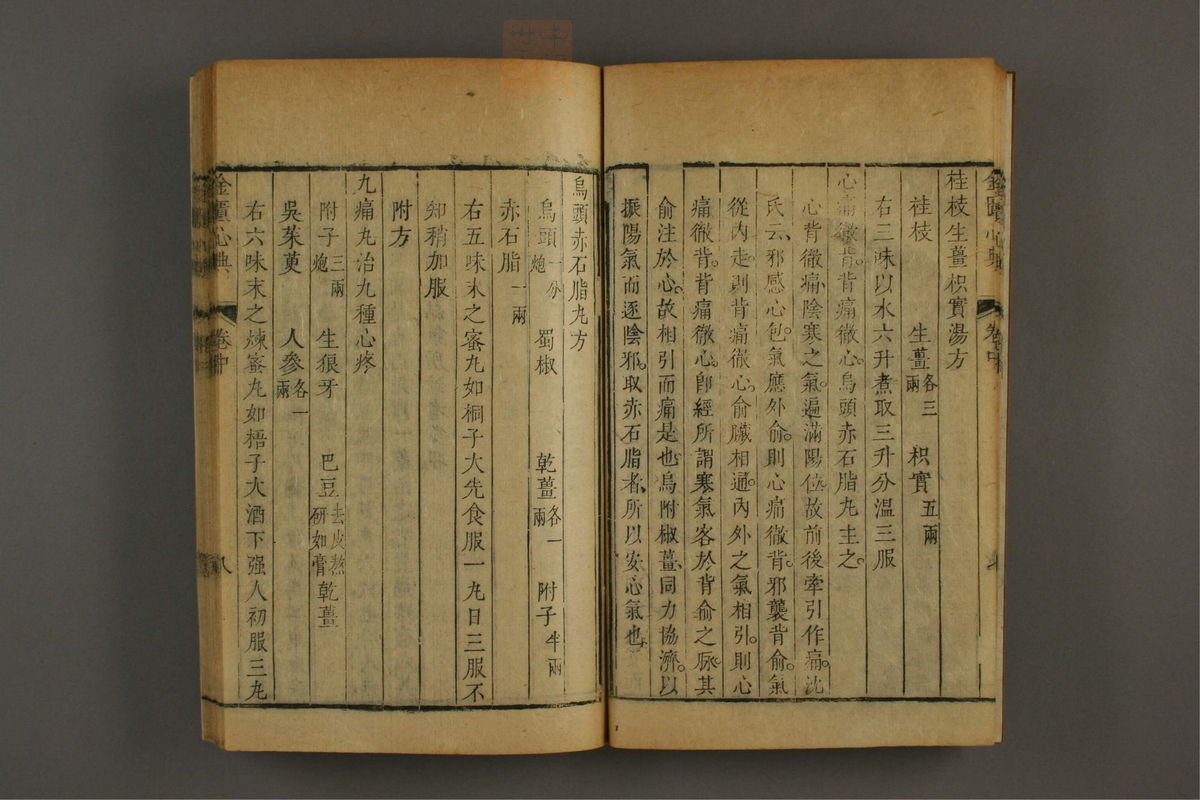 金匱心典　卷中
桂枝生薑枳實湯方
桂枝　生薑各三兩　枳實五兩
右三味以水六升煮取三升分溫三服
心痛徹背背痛徹心烏頭赤石脂丸主之
心背徹痛陰寒之氣遍滿陽位故前後牽引作痛沈
氏云邪感心包氣應外俞則心痛徹背邪襲背俞氣
從內走則背痛徹心俞臟相通內外之氣相引則心
痛徹背背痛徹心卽經所謂寒氣客於背俞之脈其
俞注於心故相引而痛是也烏附椒薑同力協濟以
振陽氣而逐陰邪取赤石脂者所以安心氣也
烏頭赤石脂丸方
烏頭一分炮　蜀椒　乾薑各一兩　附子半兩
赤石脂一兩
右五味末之蜜丸如桐子大先食服一丸日三服不
知稍加服
附方
九痛丸治九種心疼
附子三兩炮　生狼牙　巴豆去皮熬研如膏　乾薑
吳茱萸　人參各一兩
右六味末之煉蜜丸如梧子大酒下强人初服三丸
金匱心典　卷中　八